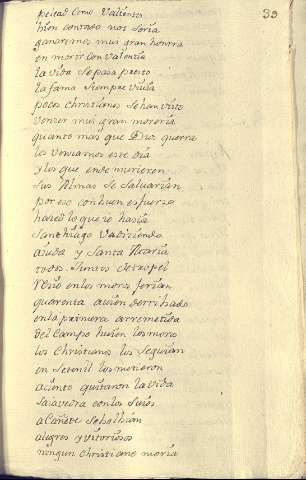 39
pelead como valientes
bien contado nos seria
ganaremos mui gran honrra
en morir con valentia
la vida se pasa presto
la fama siempre viuia
pocos christianos se han visto
vencer mui gran moreria
quanto mas que Dios querra
los venzamos este dia
y los que ende murieren
sus Almas se saluarian
por eso con buen esfuerzo
haced lo que io hazia
Santhiago va diciendo
aiuda y Santa Maria
todos juntos de tropel
en los moros ferian
quarenta auien derribado
en la primera arremetida
del Campo huien los moros
los Christianos los seguian
en Setenil los metieron
a ciento quitaron la vida
Saiavedra con los suios
a Cañete se boluian
alegres y vitoriosos
ningun christiano moria